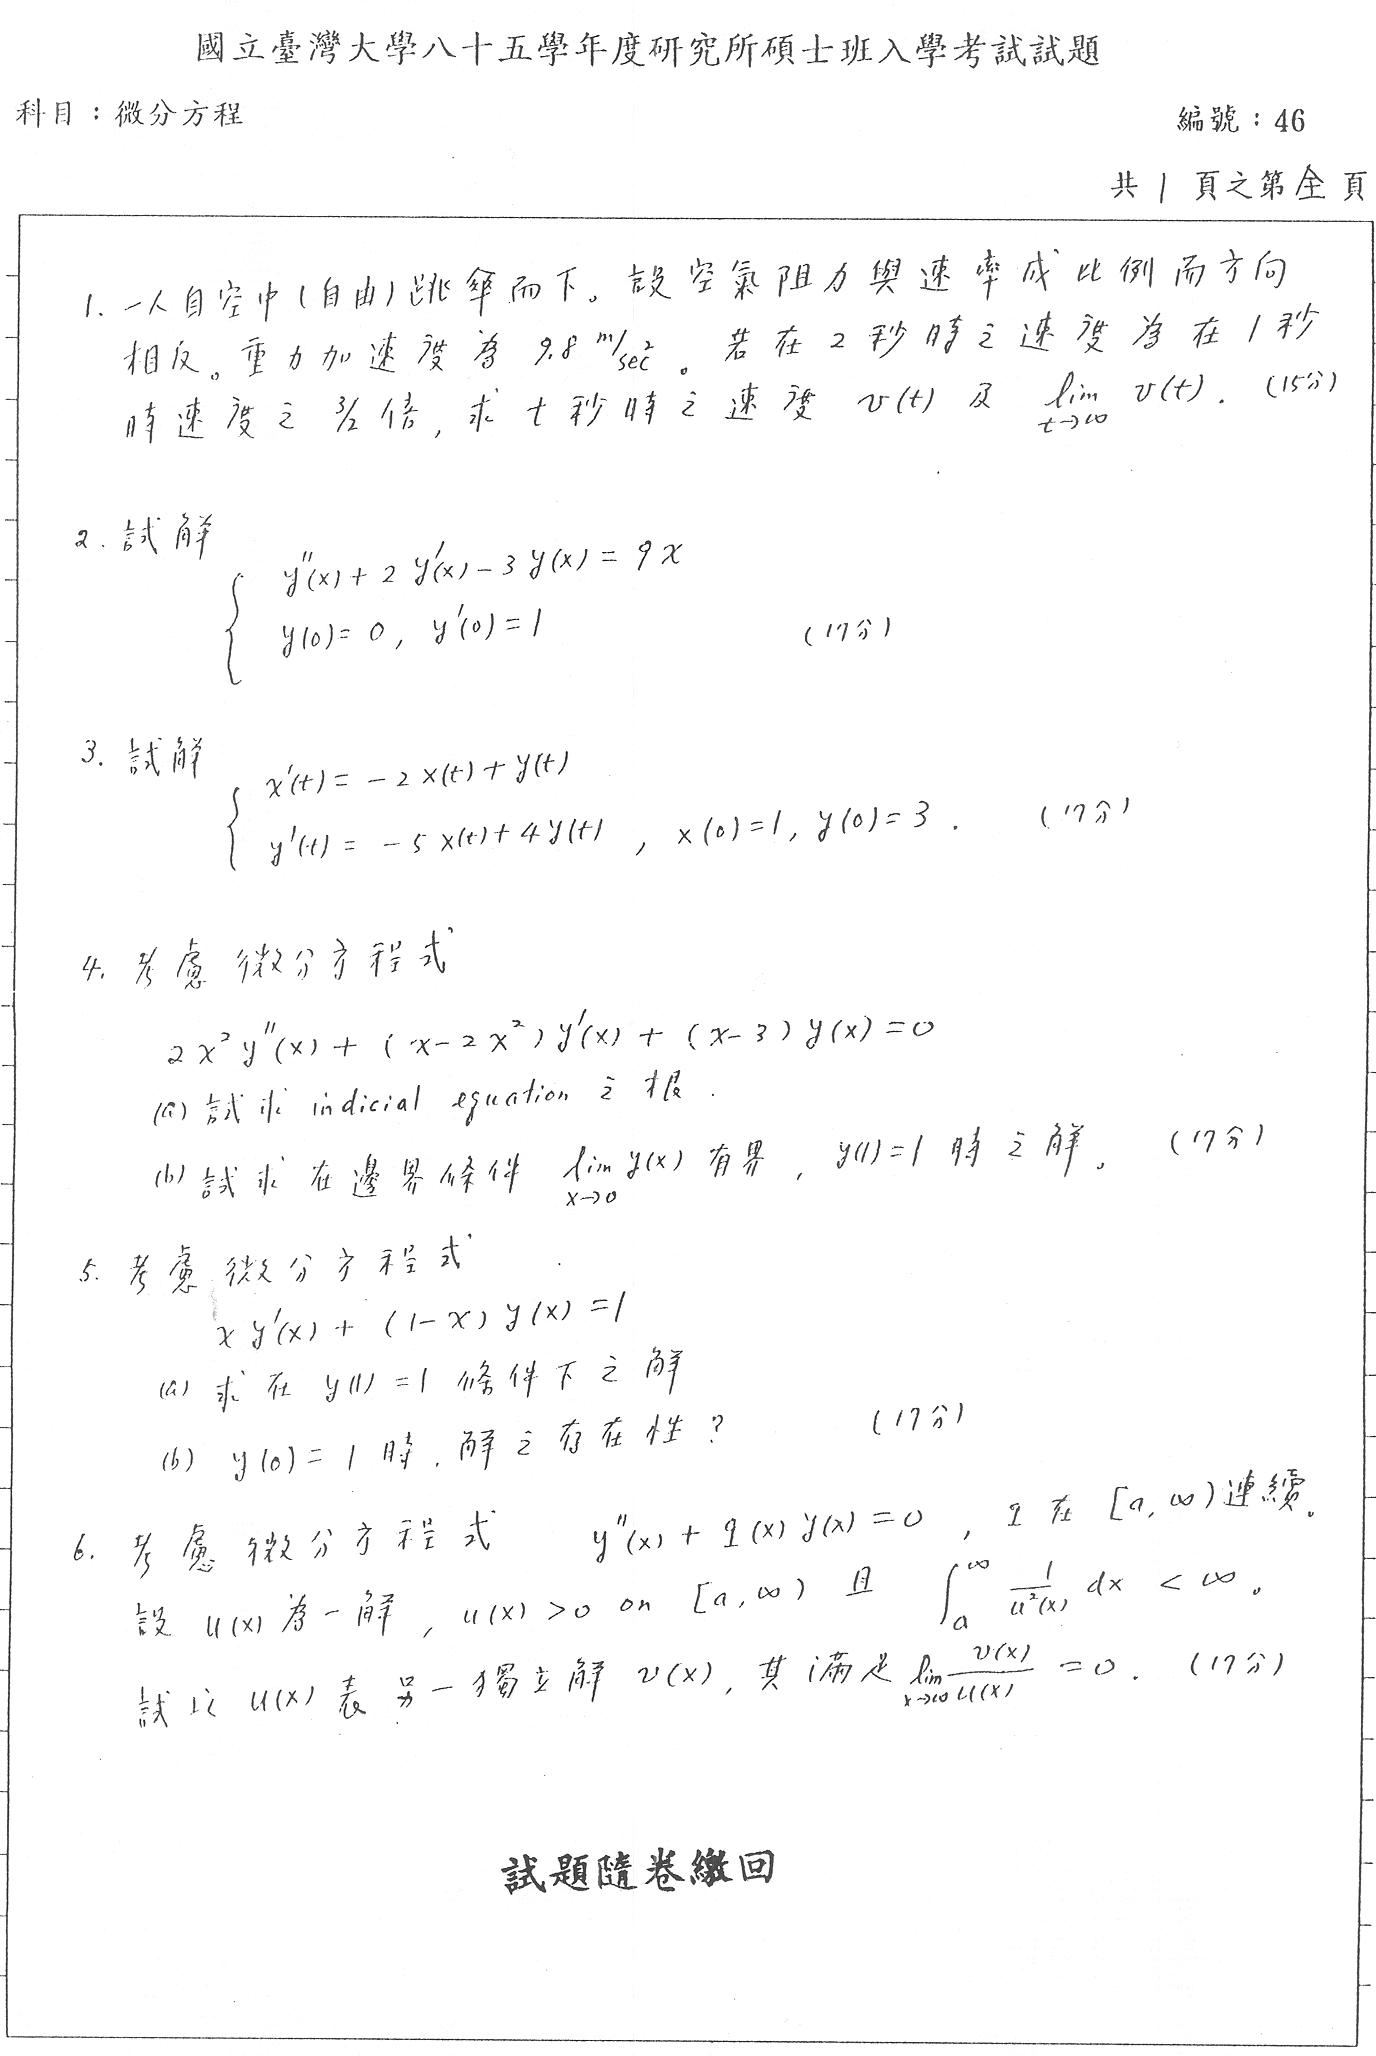 國立臺灣大學八十五學年度研究所碩士班入學考試試題
科目：微分方程
編號：46
共 1 頁之第全頁
1. 一人自空中(自由)跳傘而下。設空氣阻力與速率成比例而方向
相反。重力加速度為 9.8 m/sec²。若在2秒時之速度為在1秒
時速度之 3/2 倍, 求 t 秒時之速度 v(t) 及 lim t→∞ v(t). (15分)
2. 試解
y''(x) + 2 y'(x) - 3 y(x) = 9x
y(0) = 0, y'(0) = 1 (17分)
3. 試解
x'(t) = -2x(t) + y(t)
y'(t) = -5x(t) + 4y(t) , x(0)=1, y(0)=3. (17分)
4. 考慮微分方程式
2x²y''(x) + (x-2x²)y'(x) + (x-3)y(x) = 0
(a) 試求 indicial equation 之根.
(b) 試求在邊界條件 lim x→0 y(x) 有界, y(1)=1 時之解。 (17分)
5. 考慮微分方程式
x y'(x) + (1-x) y(x) = 1
(a) 求在 y(1) = 1 條件下之解
(b) y(0) = 1 時, 解之存在性? (17分)
6. 考慮微分方程式 y''(x) + q(x) y(x) = 0 , q 在 [a,∞) 連續。
設 u(x) 為一解, u(x) > 0 on [a,∞) 且 ∫ₐ^∞ 1/u²(x) dx < ∞。
試以 u(x) 表另一獨立解 v(x), 其滿足 lim x→∞ v(x)/u(x) = 0. (17分)
試題隨卷繳回